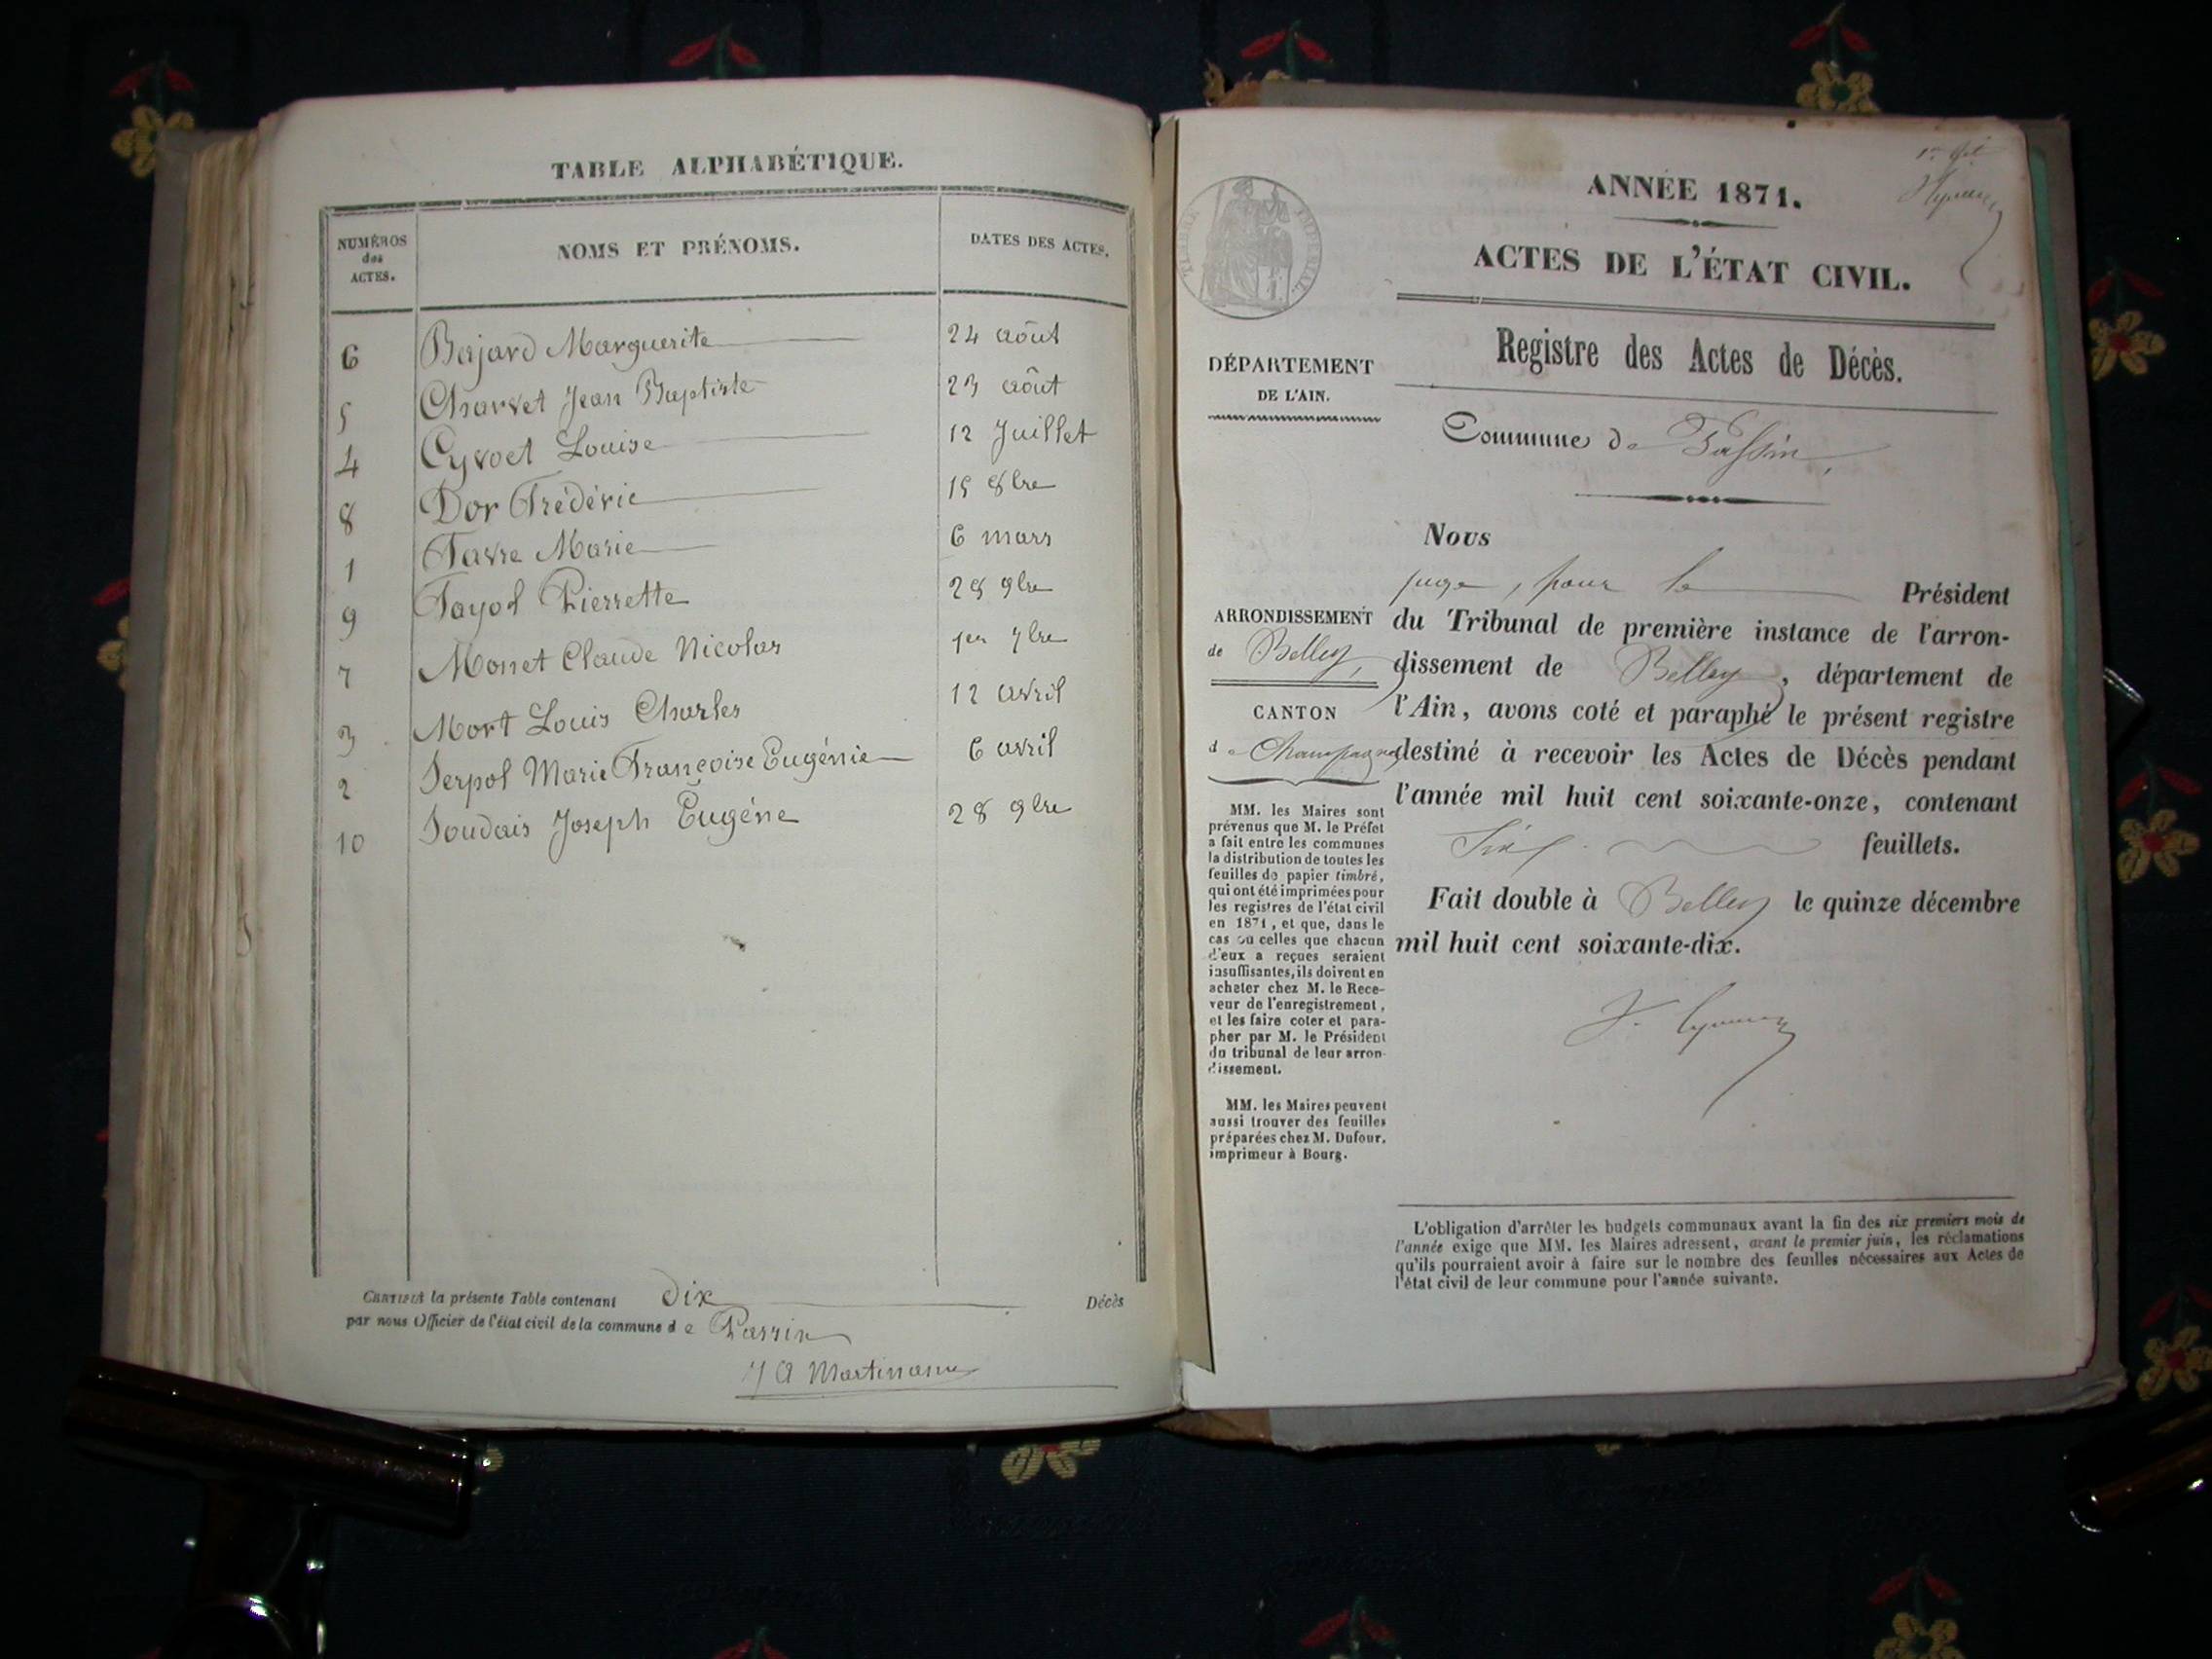 TABLE ALPHABÉTIQUE.
NUMÉROS des ACTES.
NOMS ET PRÉNOMS.
DATES DES ACTES.
6 Bajard Marguerite 24 août
5 Charvet Jean Baptiste 23 août
4 Cyvoct Louise 12 Juillet
8 Dor Frédéric 15 8bre
1 Favre Marie 6 mars
9 Fayol Pierrette 25 9bre
7 Monet Claude Nicolas 1er 7bre
3 Mort Louis Charles 12 avril
2 Serpol Marie Françoise Eugénie 6 avril
10 Soudais Joseph Eugène 28 9bre
CERTIFIÉ la présente Table contenant dix Décès
par nous Officier de l'état civil de la commune de Passin
Martinand
TIMBRE IMPÉRIAL
ANNÉE 1871.
ACTES DE L'ÉTAT CIVIL.
Registre des Actes de Décès.
DÉPARTEMENT
DE L'AIN.
Commune de Passin,
ARRONDISSEMENT
de Belley,
CANTON
de Champagne
MM. les Maires sont
prévenus que M. le Préfet
a fait entre les communes
la distribution de toutes les
feuilles de papier timbré,
qui ont été imprimées pour
les registres de l'état civil
en 1871, et que, dans le
cas où celles que chacun
d'eux a reçues seraient
insuffisantes, ils doivent en
acheter chez M. le Rece-
veur de l'enregistrement,
et les faire coter et para-
pher par M. le Président
du tribunal de leur arron-
dissement.
MM. les Maires peuvent
aussi trouver des feuilles
préparées chez M. Dufour,
imprimeur à Bourg.
Nous
juge, pour le Président
du Tribunal de première instance de l'arron-
dissement de Belley, département de
l'Ain, avons coté et paraphé le présent registre
destiné à recevoir les Actes de Décès pendant
l'année mil huit cent soixante-onze, contenant
Six feuillets.
Fait double à Belley le quinze décembre
mil huit cent soixante-dix.
L'obligation d'arrêter les budgets communaux avant la fin des six premiers mois de
l'année exige que MM. les Maires adressent, avant le premier juin, les réclamations
qu'ils pourraient avoir à faire sur le nombre des feuilles nécessaires aux Actes de
l'état civil de leur commune pour l'année suivante.